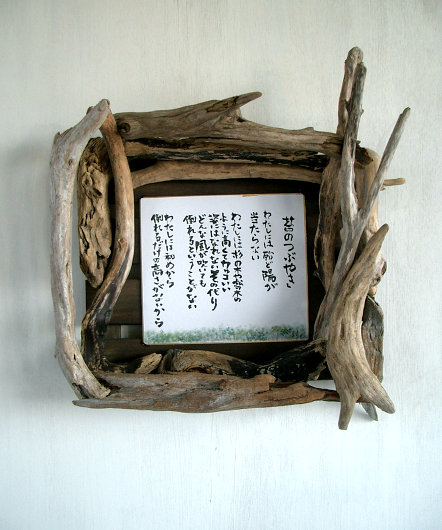 苔のつぶやき
わたしには 殆ど陽が
当たらない
わたしには 杉の木や松の木の
ように高くてカッコいい
姿にはなれない その代り
どんな風が吹いても
倒れるということがない
わたしには 初めから
倒れるだけの高さがないから